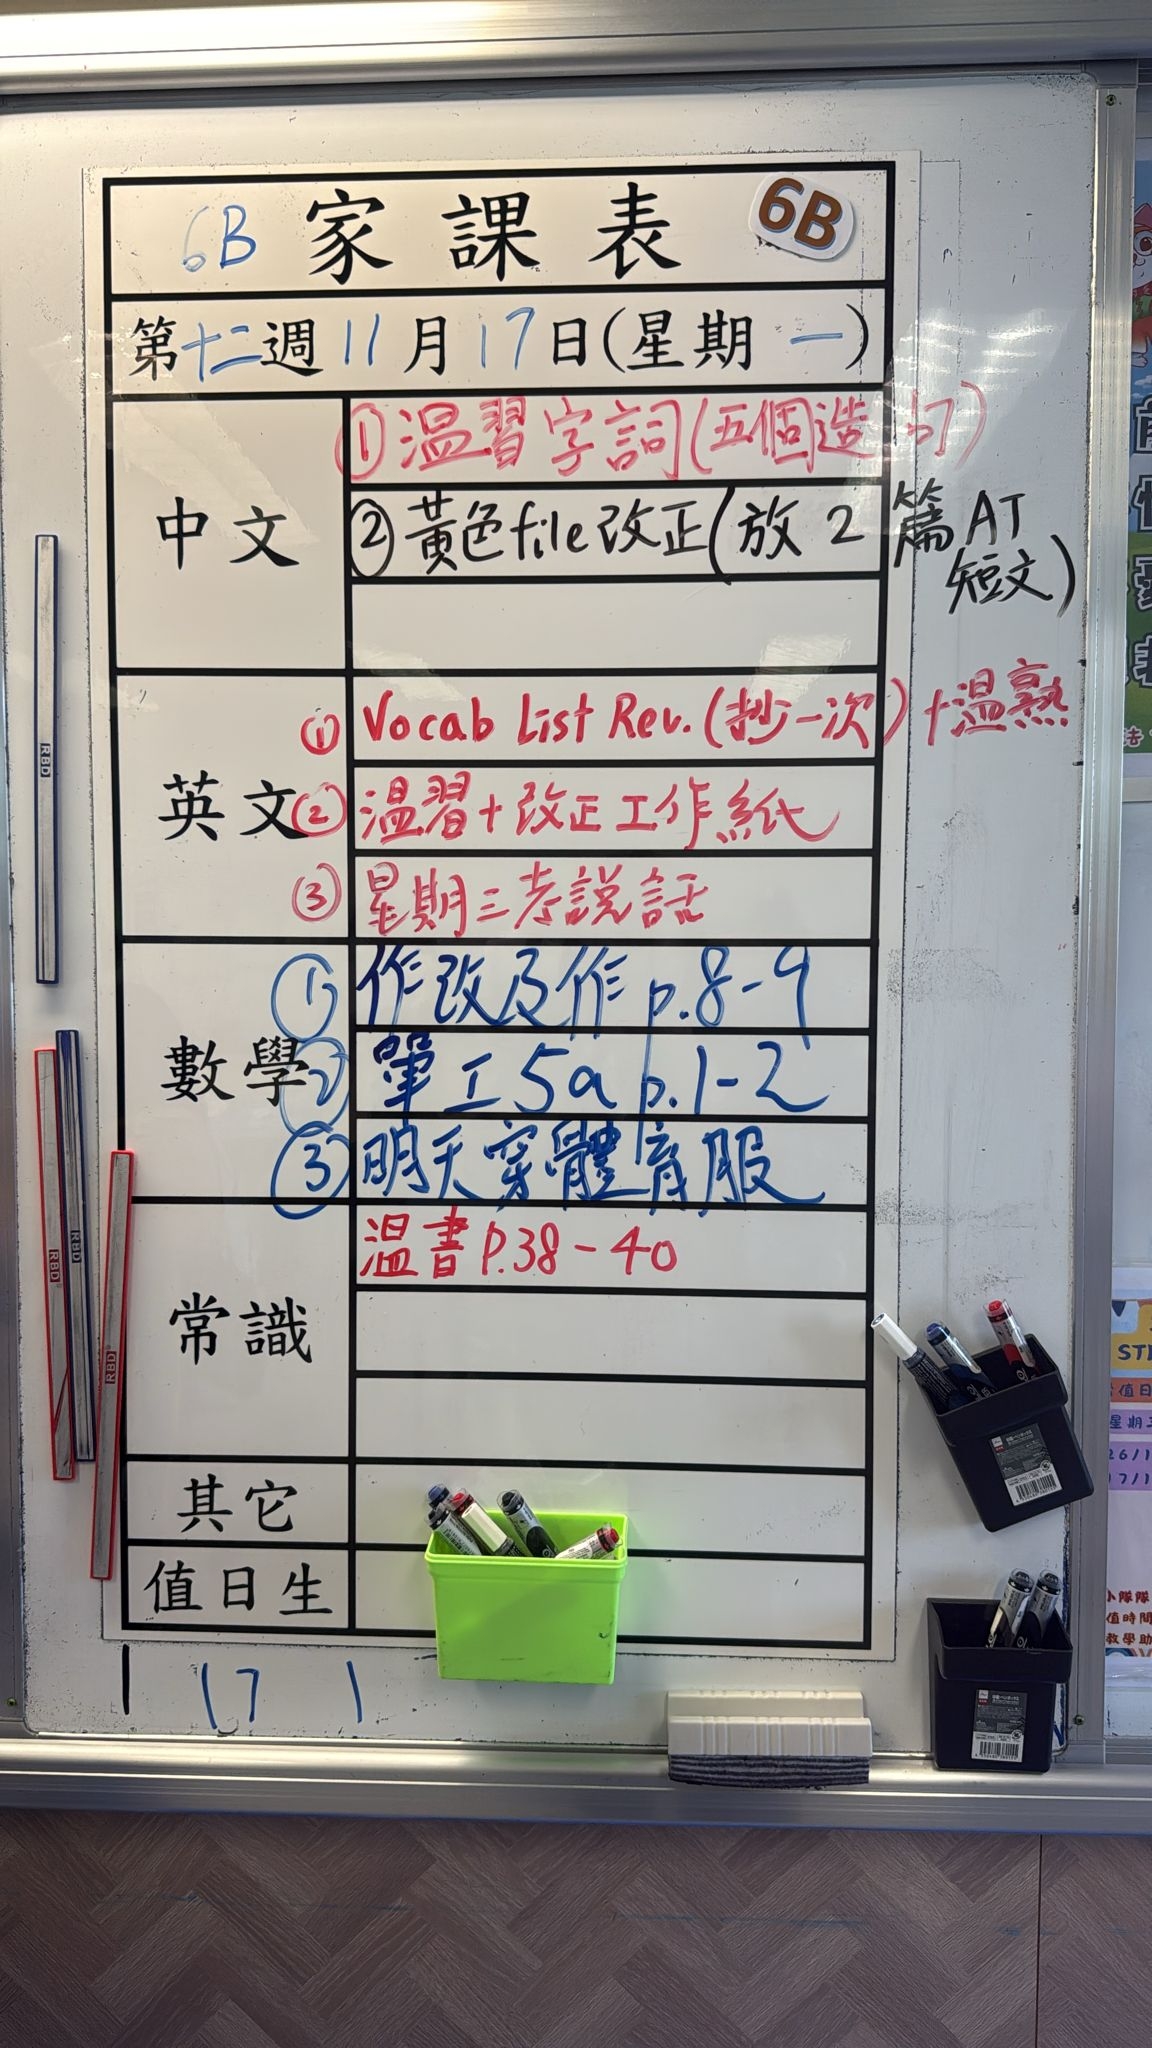 6B 家課表 6B
第十二週 11月17日(星期一)
中文
①溫習字詞(五個造句)
②黃色file改正(放2篇AT
短文)
英文
① Vocab List Rev.(抄一次)+溫熟
② 溫習+改正工作紙
③ 星期三考說話
數學
① 作改及作p.8-9
② 單工5a p.1-2
③ 明天穿體育服
常識
溫書P.38-40
其它
值日生
17
RBD
RBD
RBD
RBD